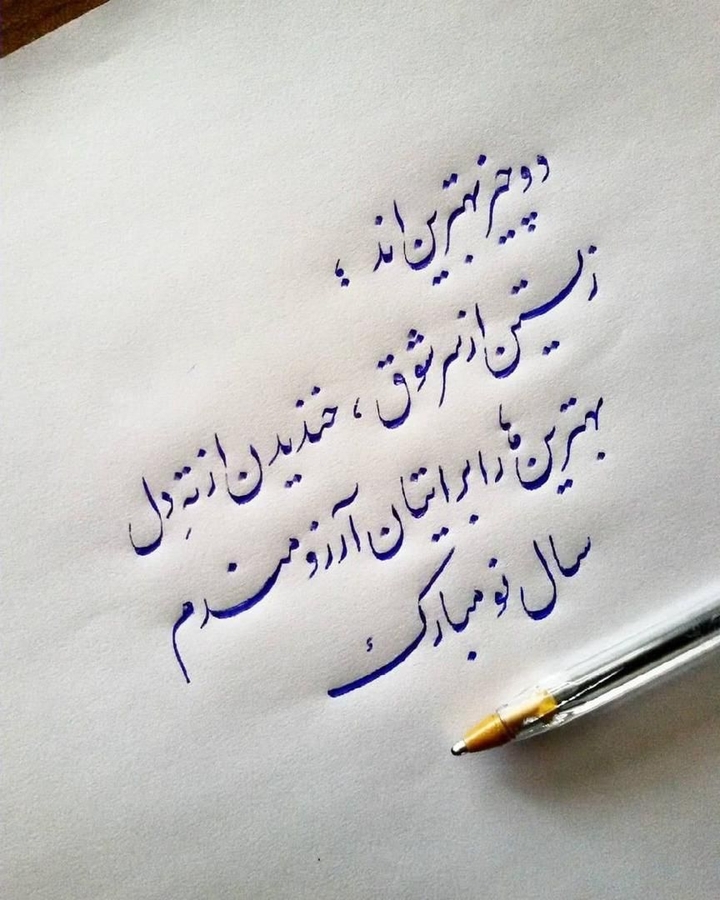 دو چیز بهترین اند ؛
زیستن از سر شوق ، خندیدن از تهِ دل
بهترین ها را برایتان آرزومندم
سال نو مبارک